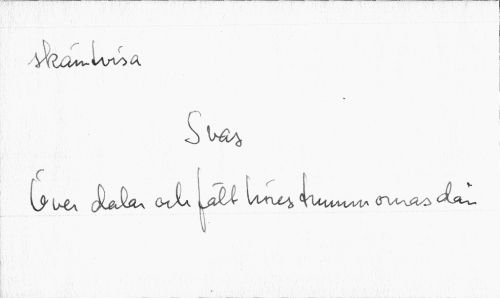 skämtvisa
Svas
Över dalar och fält höres trummornas dån